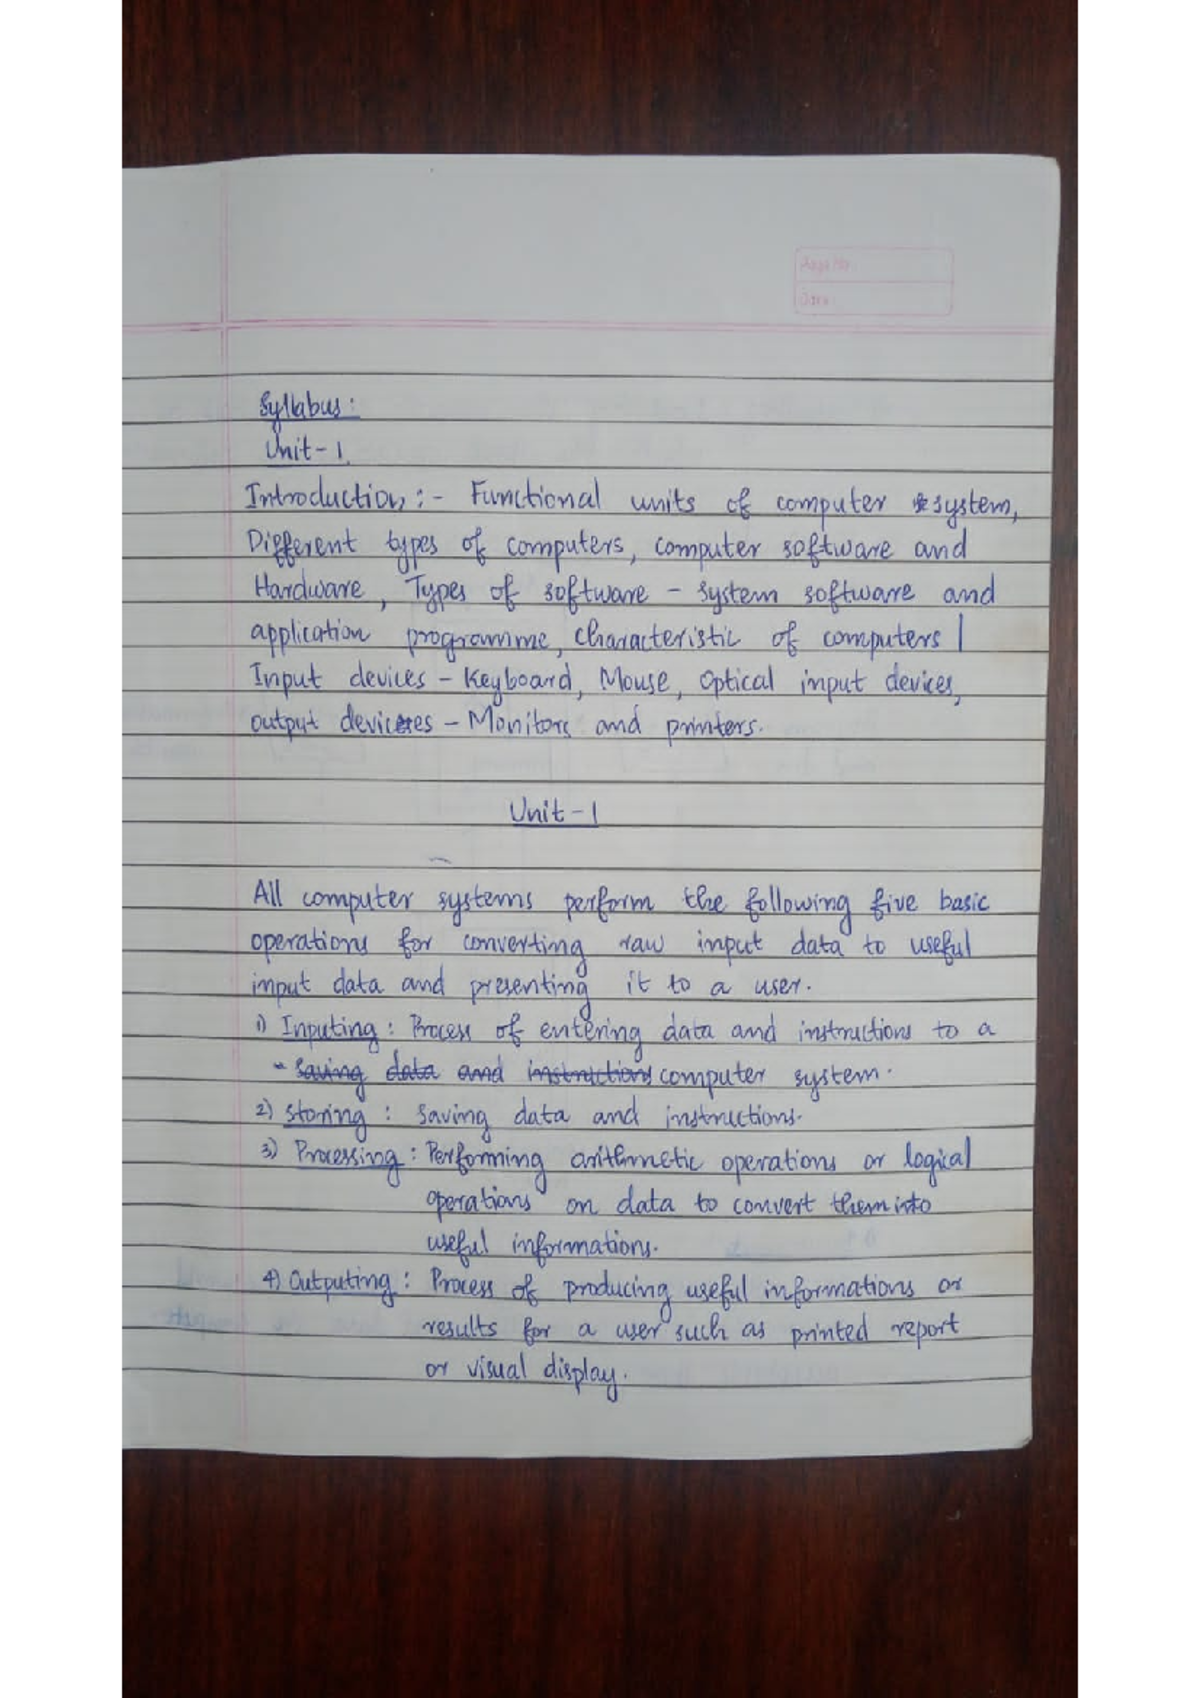 Page No.
Date
Syllabus:
Unit-1
Introduction:- Functional units of computer system,
Different types of computers, computer software and
Hardware, Types of software - system software and
application programme, characteristic of computers |
Input devices - Keyboard, Mouse, Optical input devices,
output devices - Monitors and printers.
Unit-1
All computer systems perform the following five basic
operations for converting raw input data to useful
input data and presenting it to a user.
1) Inputing: Process of entering data and instructions to a
- saving data and instructions computer system.
2) storing: saving data and instructions.
3) Processing: Performing arithmetic operations or logical
operations on data to convert them into
useful informations.
4) Outputing: Process of producing useful informations or
results for a user such as printed report
or visual display.